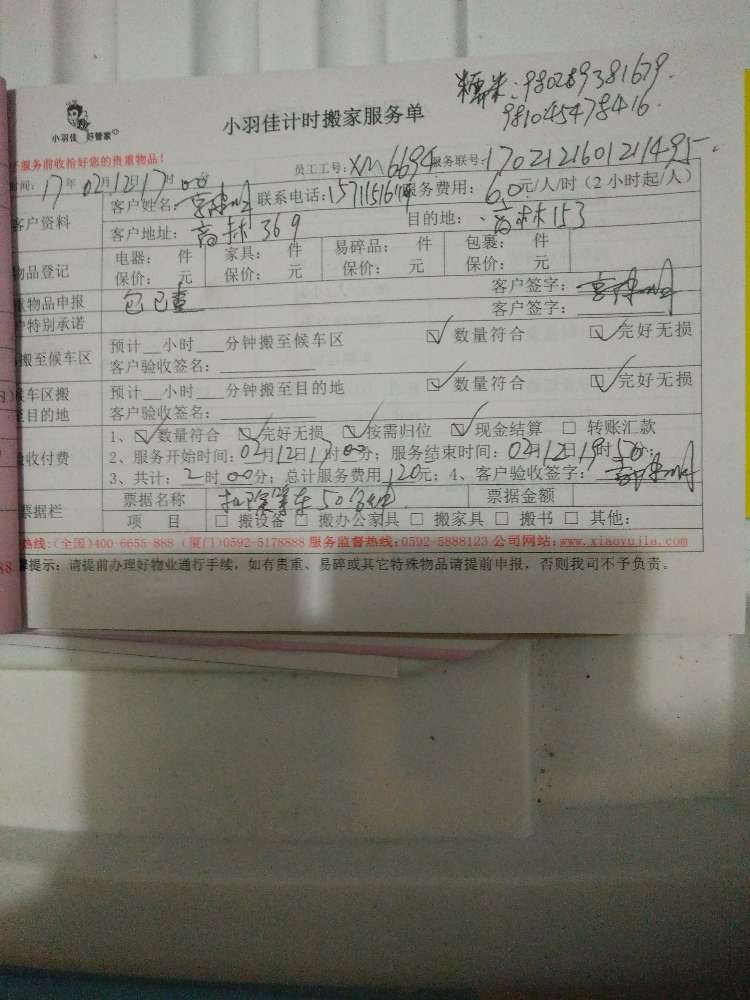 糯米:980289381679.
981045478416.
小羽佳 好管家
小羽佳计时搬家服务单
服务前收恰好您的贵重物品!
员工工号:XM6694 服务联号:170212160121495.
时间:17年02月12日17时00分
客户资料
客户姓名: 联系电话: 服务费用:60元/人/时(2小时起/人)
客户地址:高林369 目的地:高林153
物品登记
电器: 件 家具: 件 易碎品: 件 包裹: 件
保价: 元 保价: 元 保价: 元 保价: 元
重物品申报 包已查 客户签字:
户特别承诺 客户签字:
搬至候车区
预计__小时___分钟搬至候车区 ☑数量符合 ☑完好无损
客户验收签名:
候车区搬至目的地
预计__小时___分钟搬至目的地 ☑数量符合 ☑完好无损
客户验收签名:
验收付费
1、☑数量符合 ☑完好无损 ☑按需归位 ☑现金结算 □转账汇款
2、服务开始时间:02月12日17时00分;服务结束时间:02月12日19时50分;
3、共计:2时00分;总计服务费用120元;4、客户验收签字:
票据栏
票据名称 扣除等车50分钟 票据金额
项 目 □搬设备 □搬办公家具 □搬家具 □搬书 □其他:
热线:(全国)400-6655-888 (厦门)0592-5178888 服务监督热线:0592-5888123 公司网站:www.xiaoyujia.com
提示:请提前办理好物业通行手续,如有贵重、易碎或其它特殊物品请提前申报,否则我司不予负责。